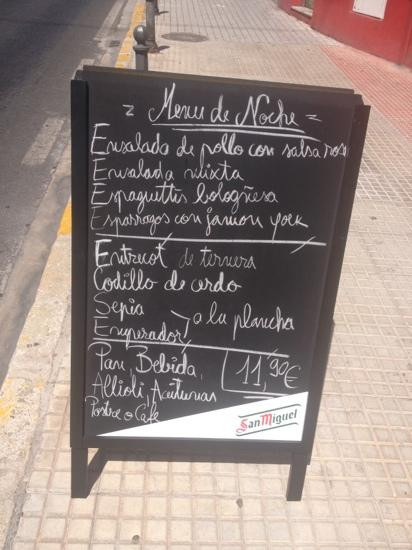 = Menu de Noche =
Ensalada de pollo con salsa rosa
Ensalada mixta
Espaguettis bologñesa
Esparragos con jamon york
Entrecot de ternera
Codillo de cerdo
Sepia
Emperador > a la plancha
Pan, Bebida,
Allioli, Aceitunas
Postre o Café
11,90€
San Miguel